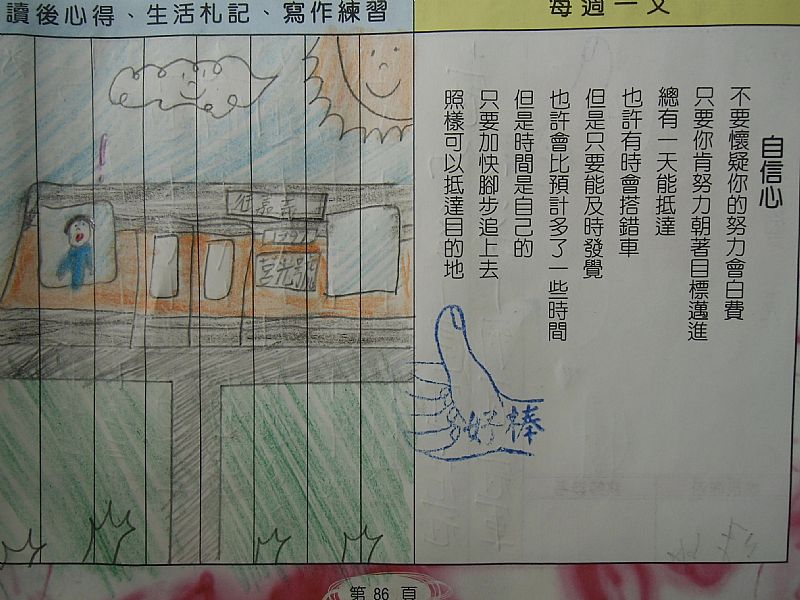 讀後心得、生活札記、寫作練習
每週一文
自信心
不要懷疑你的努力會白費
只要你肯努力朝著目標邁進
總有一天能抵達
也許有時會搭錯車
但是只要能及時發覺
也許會比預計多了一些時間
但是時間是自己的
只要加快腳步追上去
照樣可以抵達目的地
好棒
往嘉義
莒光號
第 86 頁